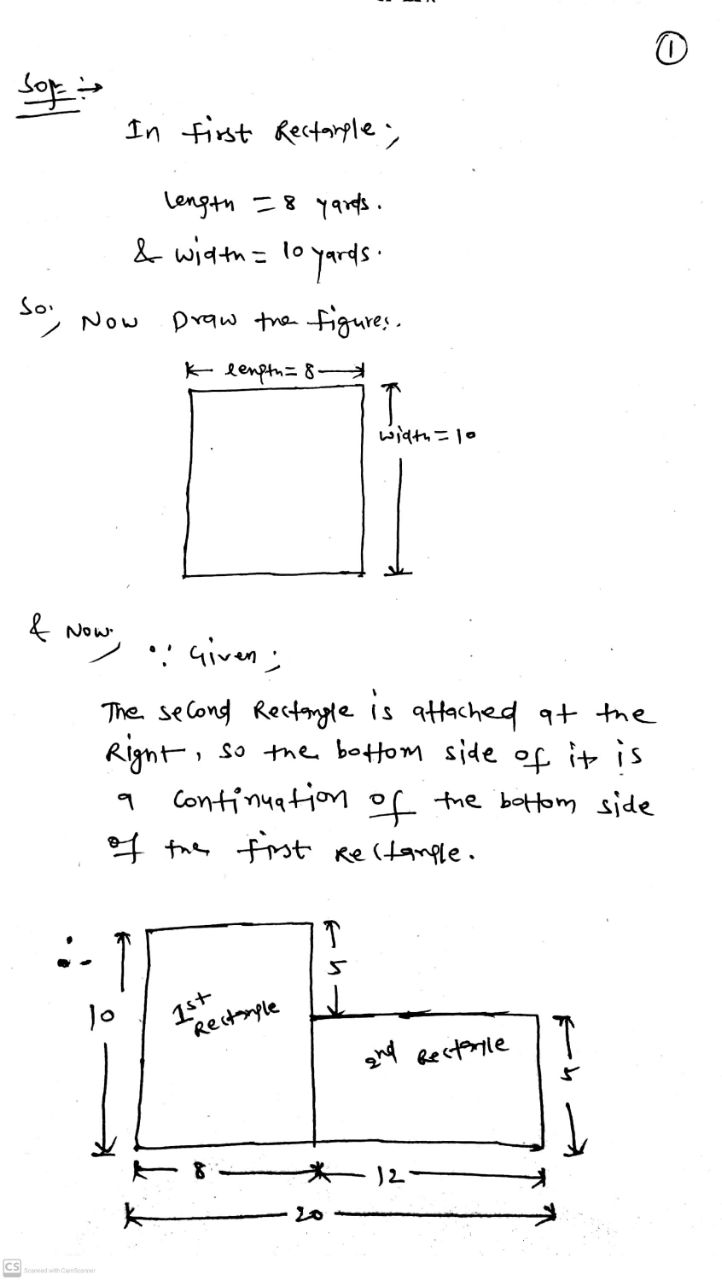 ①
Sol:→
In first Rectangle;
length = 8 yards.
& width = 10 yards.
So, Now Draw the figures.
length = 8
width = 10
& Now, ∵ Given;
The second Rectangle is attached at the
Right, so the bottom side of it is
a continuation of the bottom side
of the first Rectangle.
∴
10
1st
Rectangle
5
2nd Rectangle
5
8
12
20
CS Scanned with CamScanner